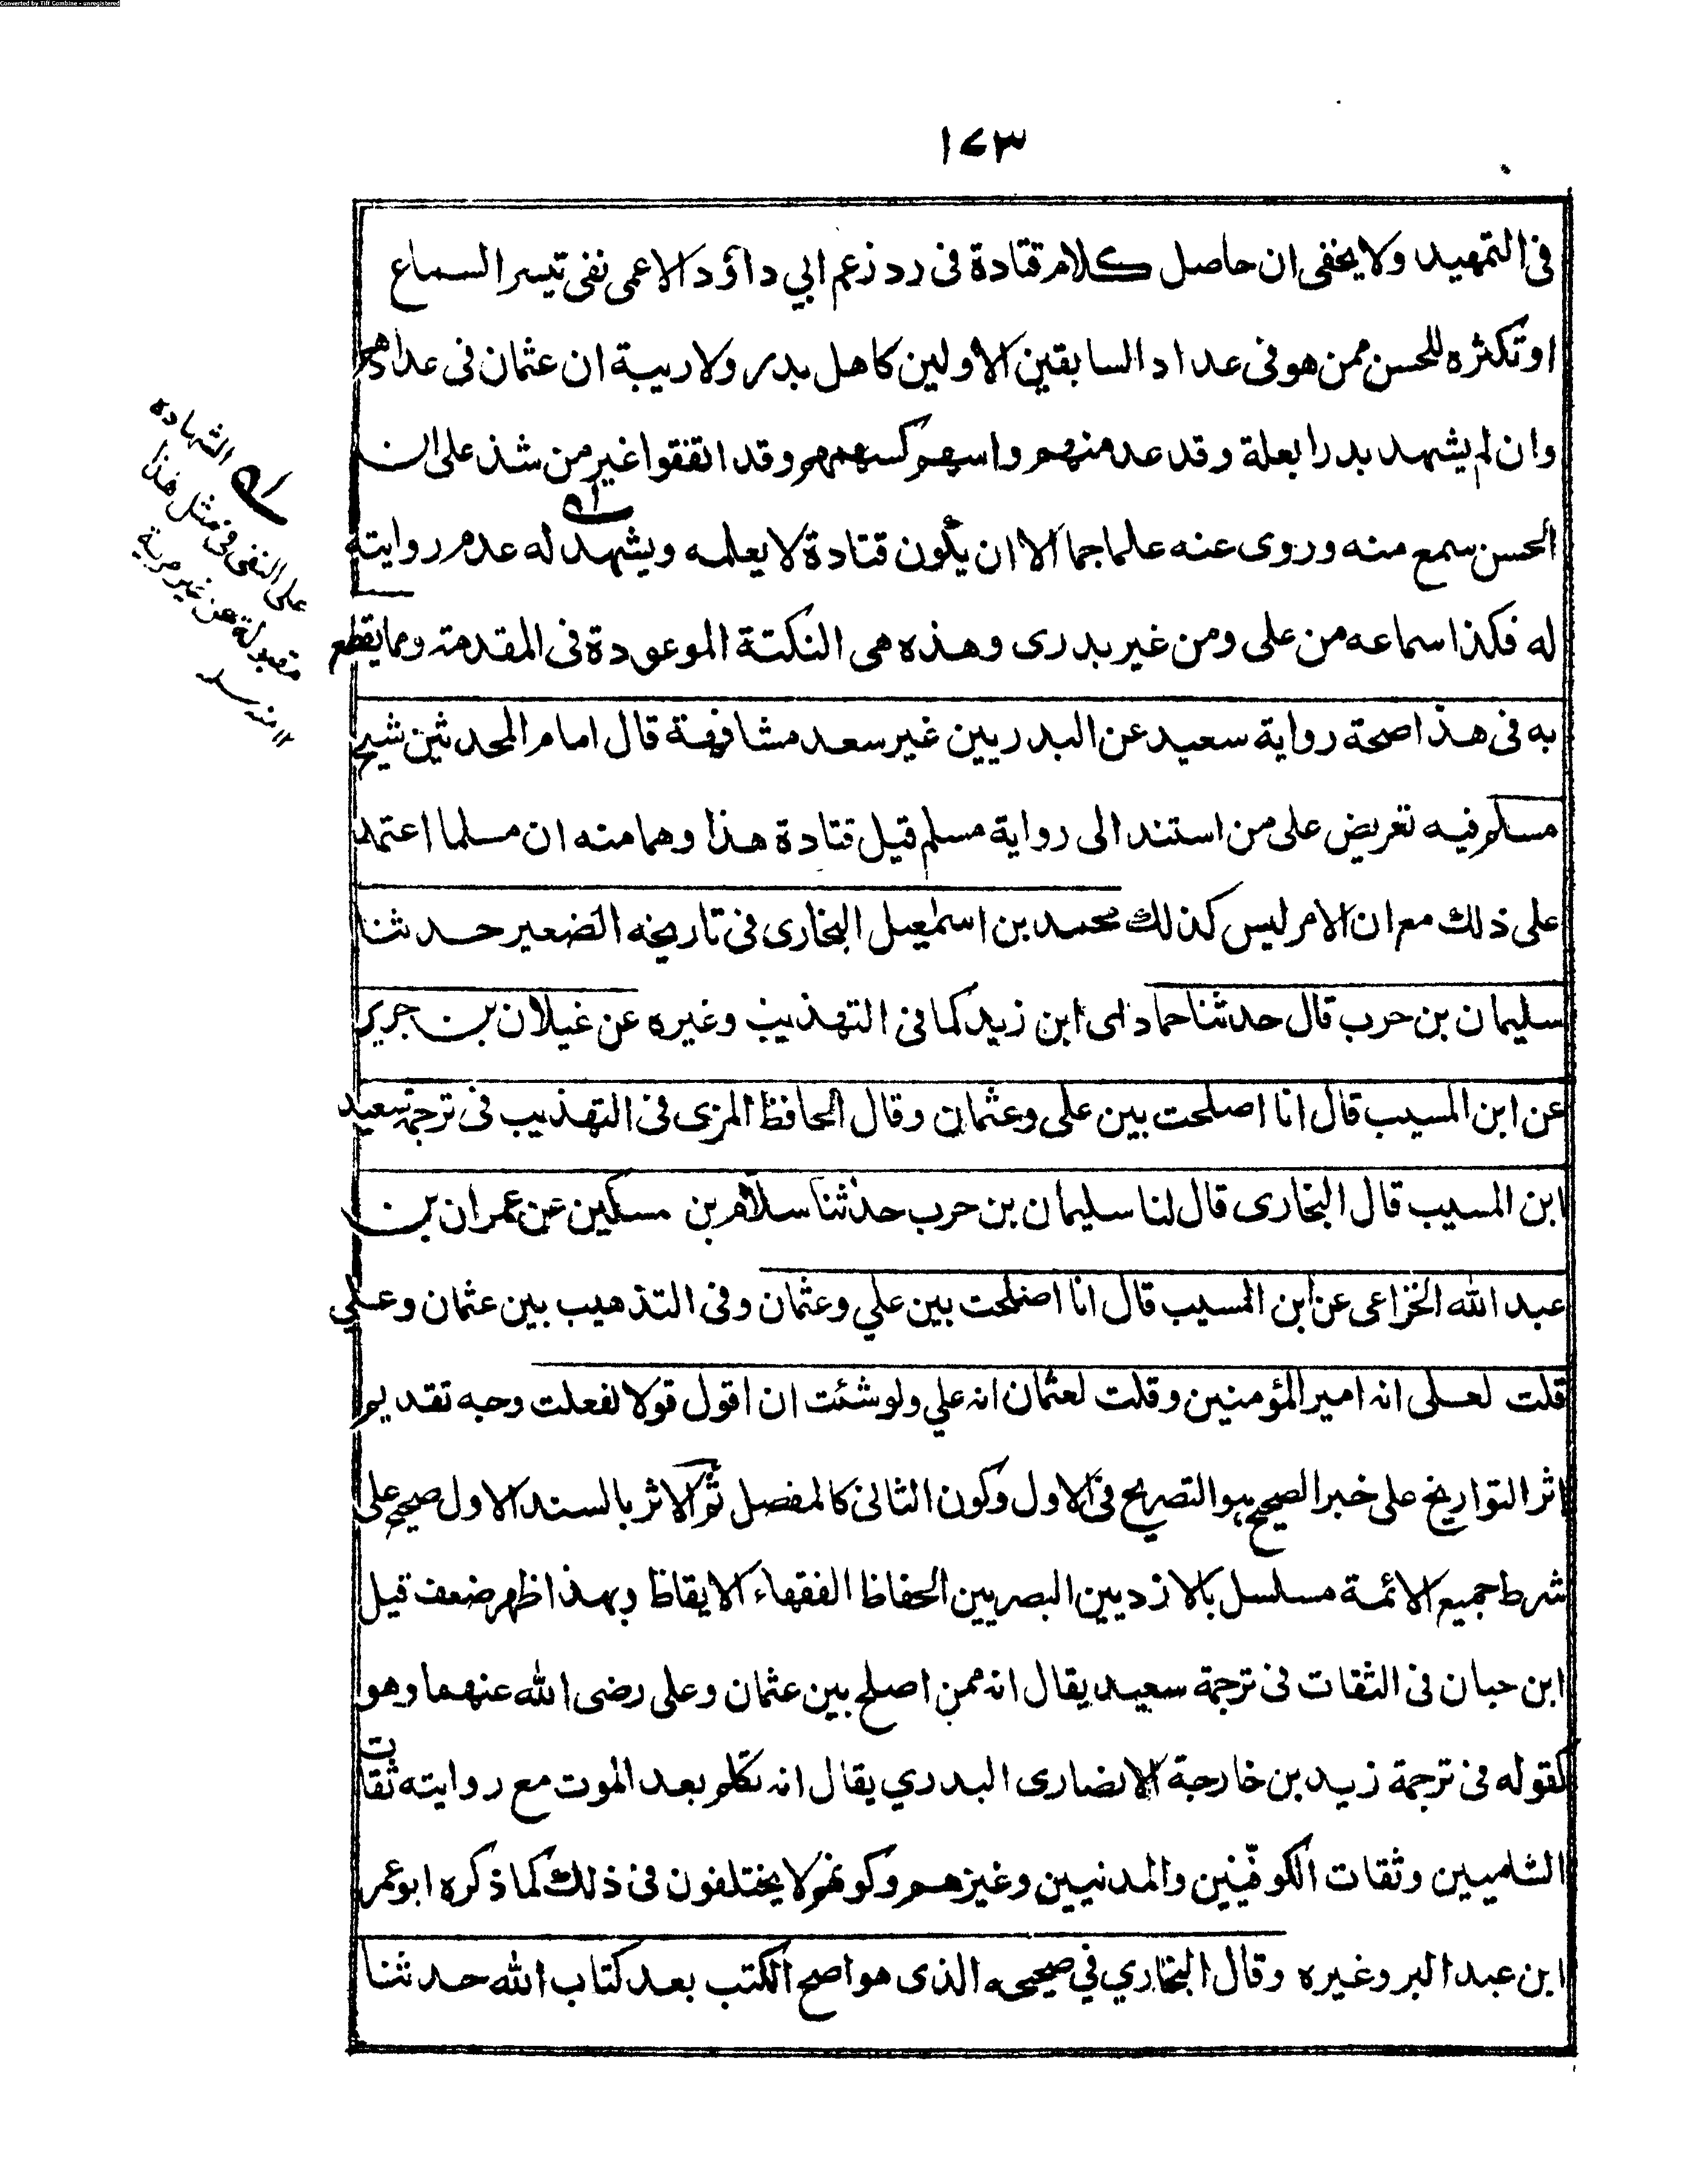 Converted by Tiff Combine - unregistered
١٧٣
فى التمهيد ولا يخفى ان حاصل كلام قتادة فى رد زعم ابي داؤد الاعمى نفى تيسر السماع
او تكثره للحسن ممن هو فى عداد السابقين الاولين كاهل بدر ولا ريبة ان عثمان فى عدادهم
وان لم يشهد بدرا بعلة وقد عد منهم واسهم كسهمهم وقد اتفقوا غير من شذ على ان
الحسن سمع منه وروى عنه علما جما الا ان يكون قتادة لا يعلمه ويشهد له عدم روايته
له فكذا سماعه من على ومن غير بدرى وهذه هى النكتة الموعودة فى المقدمة ومما يقطع
به فى هذا صحة رواية سعيد عن البدريين غير سعد مشافهة قال امام المحدثين شيخ
مسلم فيه تعريض على من استند الى رواية مسلم قيل قتادة هذا وهما منه ان مسلما اعتمد
على ذلك مع ان الامر ليس كذلك محمد بن اسمٰعيل البخارى فى تاريخه الصغير حدثنا
سليمان بن حرب قال حدثنا حماد اى ابن زيد كما فى التهذيب وغيره عن غيلان بن جرير
عن ابن المسيب قال انا اصلحت بين على وعثمان وقال الحافظ المزى فى التهذيب فى ترجمة سعيد
ابن المسيب قال البخارى قال لنا سليمان بن حرب حدثنا سلام بن مسكين عن عمران بن
عبد الله الخزاعى عن ابن المسيب قال انا اصلحت بين علي وعثمان وفى التذهيب بين عثمان وعلي
قلت لعلى انه امير المؤمنين وقلت لعثمان انه علي ولو شئت ان اقول قولا لفعلت وجه تقديم
اثر التواريخ على خبر الصحيح هو التصريح فى الاول وكون الثانى كالمفصل ثم الاثر بالسند الاول صحيح على
شرط جميع الائمة مسلسل بالازديين البصريين الحفاظ الفقهاء الايقاظ وبهذا ظهر ضعف قيل
ابن حبان فى الثقات فى ترجمة سعيد يقال انه ممن اصلح بين عثمان وعلى رضى الله عنهما وهو
كقوله فى ترجمة زيد بن خارجة الانصارى البدري يقال انه تكلم بعد الموت مع روايته ثقات
الشاميين وثقات الكوفيين والمدنيين وغيرهم وكونهم لا يختلفون فى ذلك كما ذكره ابو عمر
ابن عبد البر وغيره وقال البخاري في صحيحه الذى هو اصح الكتب بعد كتاب الله حدثنا
الشهادة
على النفى فى مثل هذا
مقبولة من غير مرية
١٢ منه